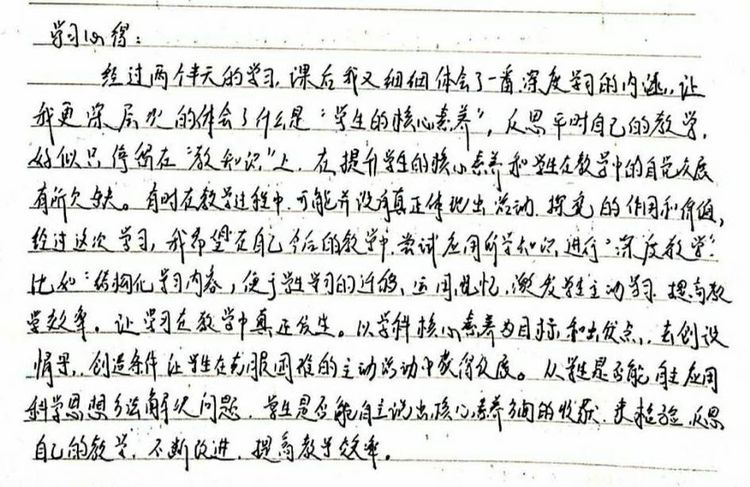 学习心得：
经过两个半天的学习，课后我又细细体会了一番深度学习的内涵，让
我更深层次的体会了什么是“学生的核心素养”，反思平时自己的教学，
好似只停留在“教知识”上，在提升学生的核心素养和学生在教学中的自觉发展
有所欠缺。有时在教学过程中，可能并没有真正体现出活动、探究的作用和价值，
经过这次学习，我希望在自己今后的教学中，尝试应用所学知识，进行“深度教学”
比如：结构化学习内容，便于学生学习的迁移、运用、记忆，激发学生主动学习，提高教
学效率。让学习在教学中真正发生。以学科核心素养为目标和出发点，去创设
情景，创造条件让学生在克服困难的主动活动中获得发展。从学生是否能自主应用
科学思想方法解决问题，学生是否能自主说出核心素养方面的收获，来检验、反思
自己的教学，不断改进，提高教学效率。